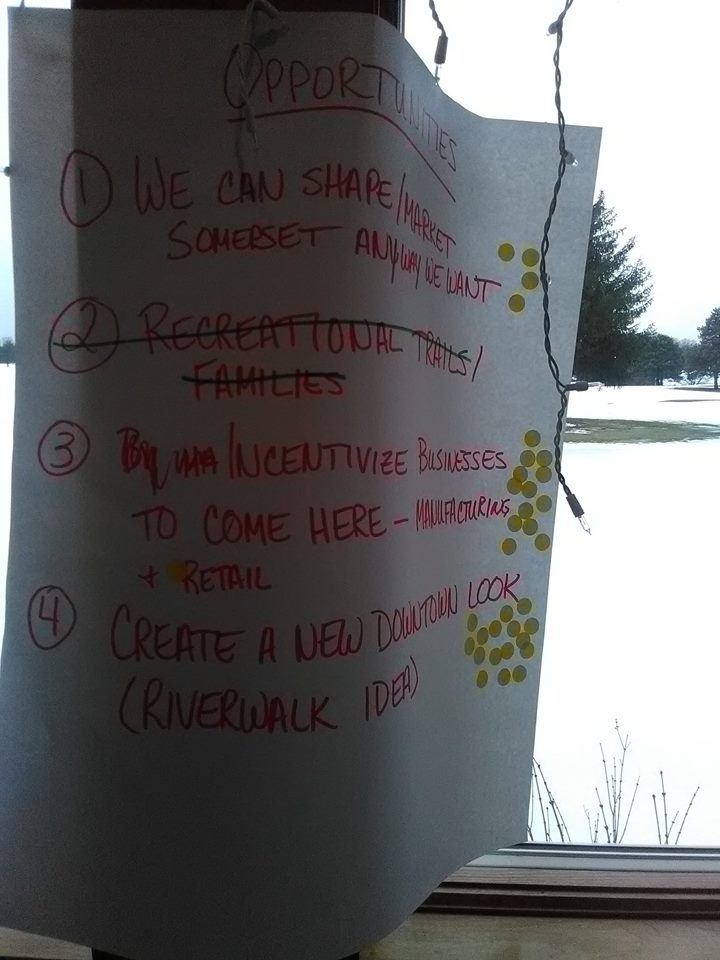 OPPORTUNITIES
1 WE CAN SHAPE/MARKET
SOMERSET ANYWAY WE WANT
2 RECREATIONAL TRAILS/
FAMILIES
3 INCENTIVIZE BUSINESSES
TO COME HERE - MANUFACTURING
+ RETAIL
4 CREATE A NEW DOWNTOWN LOOK
(RIVERWALK IDEA)